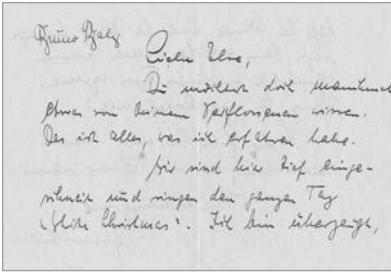 Bruno Balz
Liebe Else,
Du möchtest doch manchmal
etwas von Deinem Verflossenen wissen.
Das ist alles, was ich erfahren habe.
Wir sind hier tief einge-
schneit und singen den ganzen Tag
"White Christmas". Ich bin überzeugt,